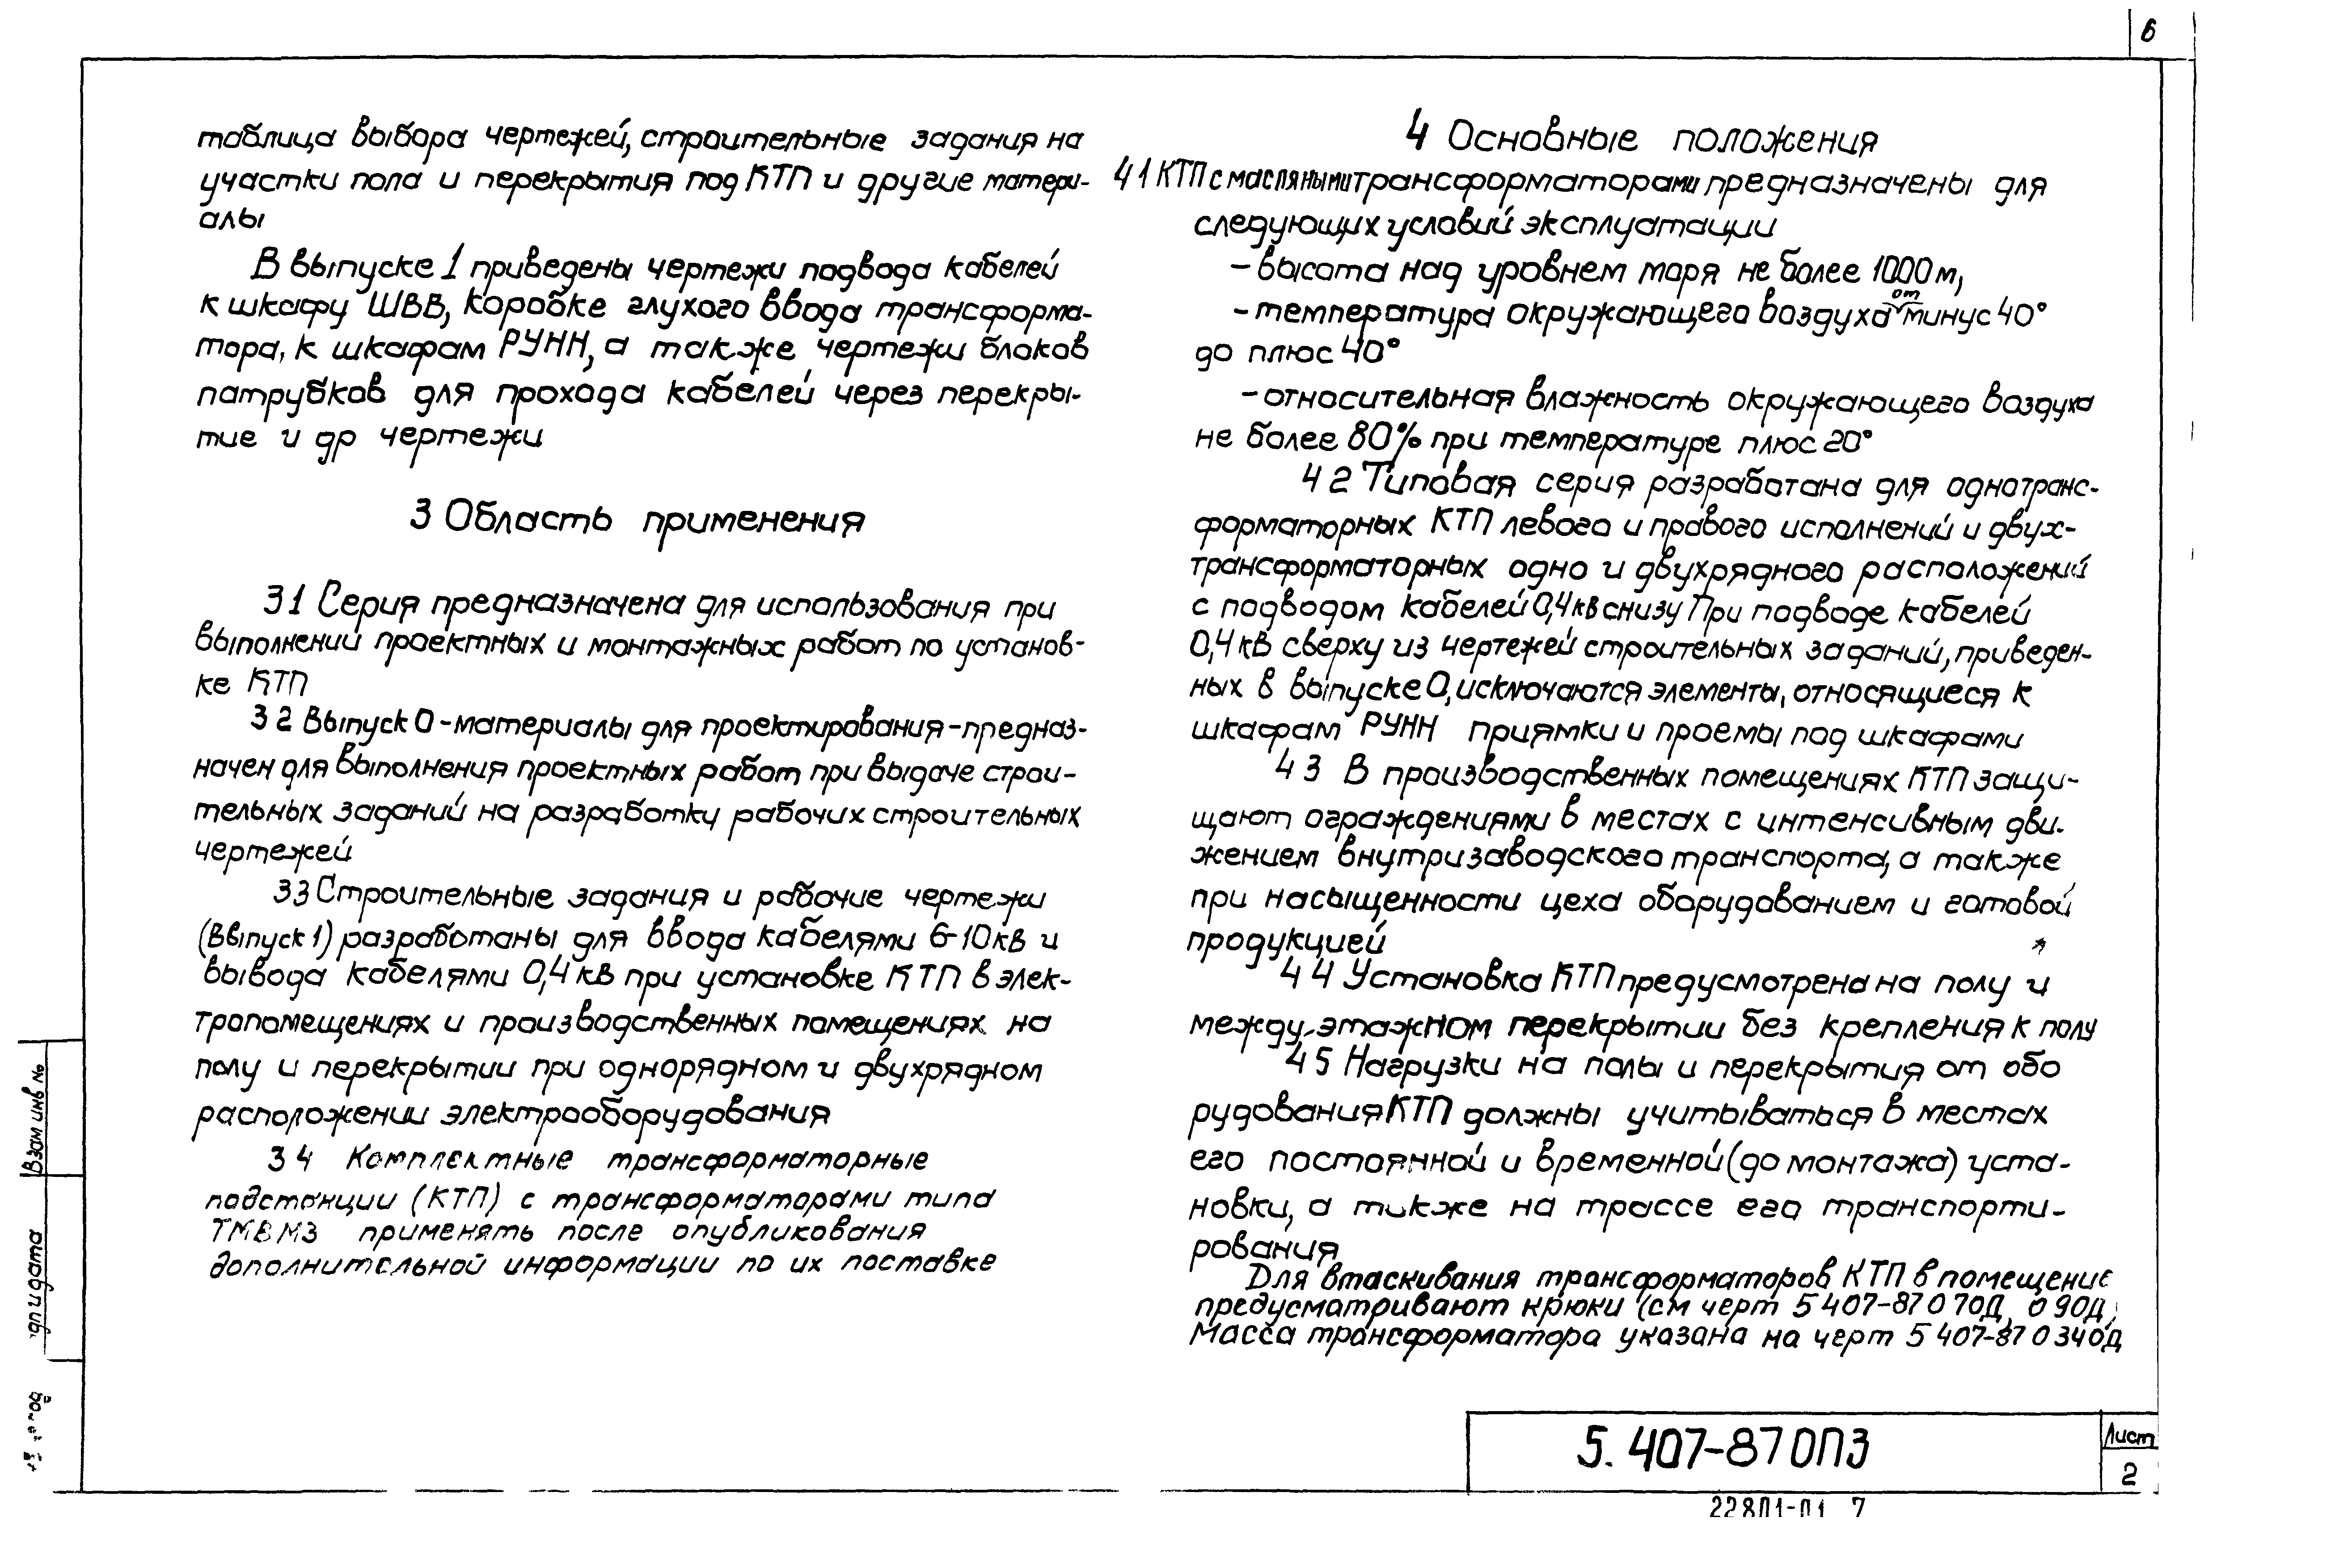 6
таблица выбора чертежей, строительные задания на
участки пола и перекрытия под КТП и другие матери-
алы
В выпуске 1 приведены чертежи подвода кабелей
к шкафу ШВВ, коробке глухого ввода трансформа-
тора, к шкафам РУНН, а также чертежи блоков
патрубков для прохода кабелей через перекры-
тие и др чертежи
3 Область применения
3 1 Серия предназначена для использования при
выполнении проектных и монтажных работ по установ-
ке КТП
3 2 Выпуск 0 - материалы для проектирования - предназ-
начен для выполнения проектных работ при выдаче строи-
тельных заданий на разработку рабочих строительных
чертежей
3 3 Строительные задания и рабочие чертежи
(Выпуск 1) разработаны для ввода кабелями 6-10кВ и
вывода кабелями 0,4 кВ при установке КТП в элек-
тропомещениях и производственных помещениях на
полу и перекрытии при однорядном и двухрядном
расположении электрооборудования
3 4 Комплектные трансформаторные
подстанции (КТП) с трансформаторами типа
ТМВМЗ применять после опубликования
дополнительной информации по их поставке
4 Основные положения
4 1 КТП с масляными трансформаторами предназначены для
следующих условий эксплуатации
- высота над уровнем моря не более 1000 м,
- температура окружающего воздуха от минус 40°
до плюс 40°
- относительная влажность окружающего воздуха
не более 80% при температуре плюс 20°
4 2 Типовая серия разработана для однотранс-
форматорных КТП левого и правого исполнений и двух-
трансформаторных одно и двухрядного расположений
с подводом кабелей 0,4 кВ снизу При подводе кабелей
0,4 кВ сверху из чертежей строительных заданий, приведен-
ных в выпуске 0, исключаются элементы, относящиеся к
шкафам РУНН приямки и проемы под шкафами
4 3 В производственных помещениях КТП защи-
щают ограждениями в местах с интенсивным дви-
жением внутризаводского транспорта, а также
при насыщенности цеха оборудованием и готовой
продукцией
4 4 Установка КТП предусмотрена на полу и
между этажном перекрытии без крепления к полу
4 5 Нагрузки на полы и перекрытия от обо
рудования КТП должны учитываться в местах
его постоянной и временной (до монтажа) уста-
новки, а также на трассе его транспорти-
рования
Для втаскивания трансформаторов КТП в помещение
предусматривают крюки (см черт 5 407-87 0 70Д, 0 90Д,
Масса трансформатора указана на черт 5 407-87 0 340Д
Взам инв №
дата
5. 407-87 0ПЗ
Лист
2
22801-01 7